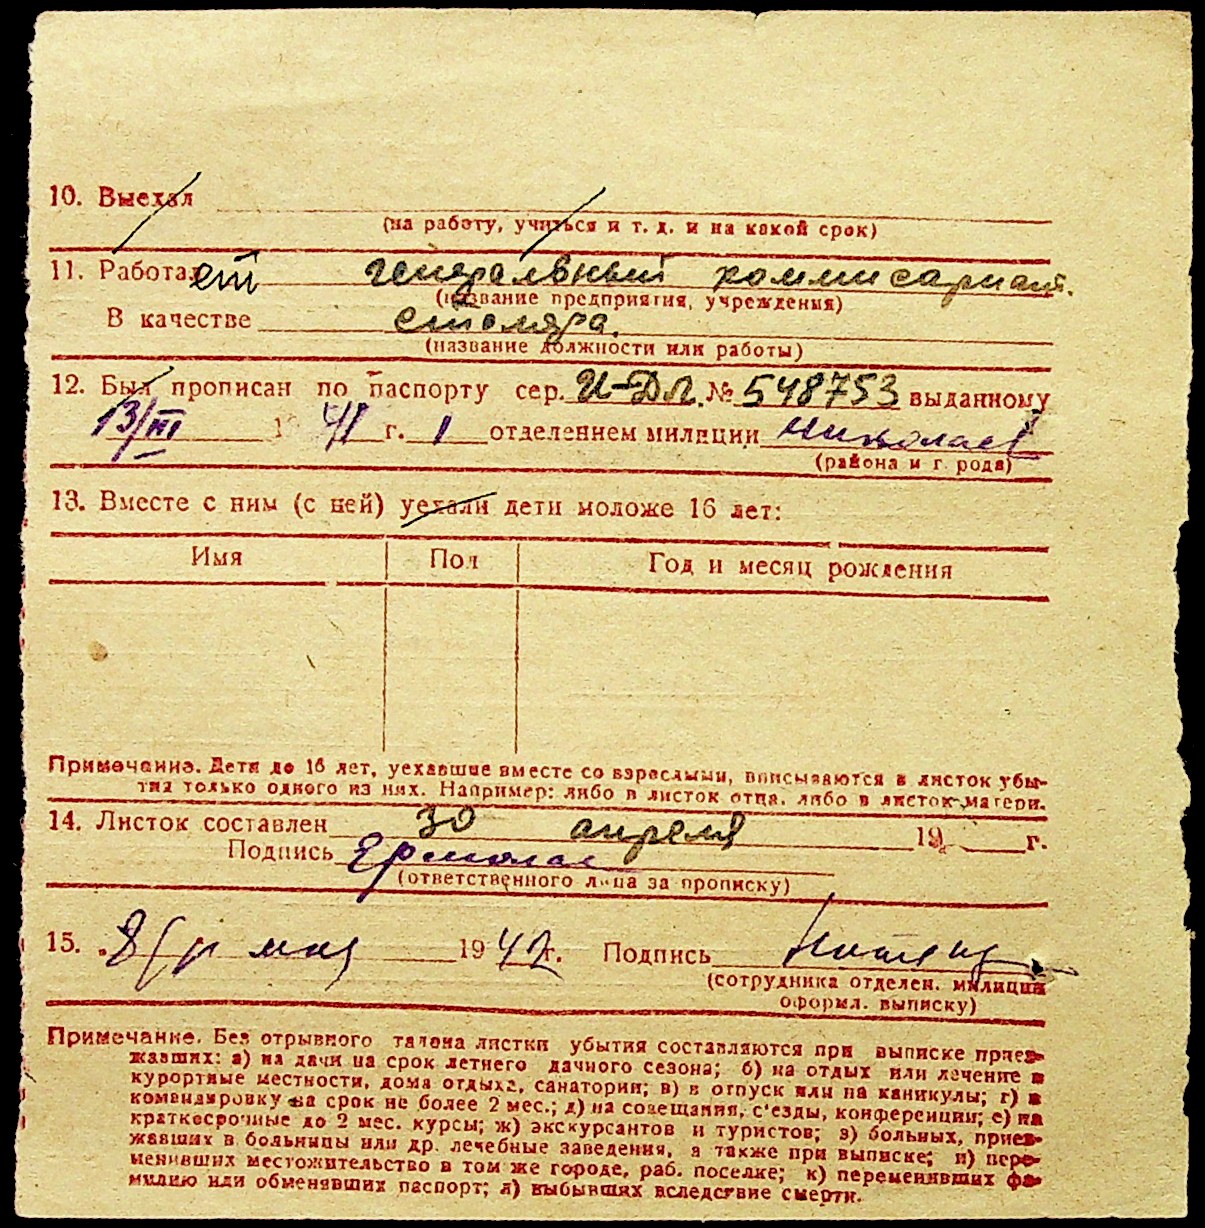 10. Выехал
(на работу, учиться и т. д. и на какой срок)
11. Работает генеральный коммисариат.
(название предприятия, учреждения)
В качестве столяра.
(название должности или работы)
12. Был прописан по паспорту сер. И-ДЛ. № 548753 выданному
13/III 1 41 г. 1 отделением милиции Николаев
(района и города)
13. Вместе с ним (с ней) уехали дети моложе 16 лет:
Имя Пол Год и месяц рождения
Примечание. Дети до 16 лет, уехавшие вместе со взрослыми, вписываются в листок убы-
тия только одного из них. Например: либо в листок отца, либо в листок матери.
14. Листок составлен 30 апреля 19 г.
Подпись
(ответственного лица за прописку)
15. „8 мая 1942 г. Подпись
(сотрудника отделен. милиции
оформл. выписку)
Примечание. Без отрывного талона листки убытия составляются при выписке приез-
жавших: а) на дачи на срок летнего дачного сезона; б) на отдых или лечение в
курортные местности, дома отдыха, санатории; в) в отпуск или на каникулы; г) в
командировку на срок не более 2 мес.; д) на совещания, с'езды, конференции; е) на
краткосрочные до 2 мес. курсы; ж) экскурсантов и туристов; з) больных, приез-
жавших в больницы или др. лечебные заведения, а также при выписке; и) пере-
менивших местожительство в том же городе, раб. поселке; к) переменивших фа-
милию или обменявших паспорт; л) выбывших вследствие смерти.